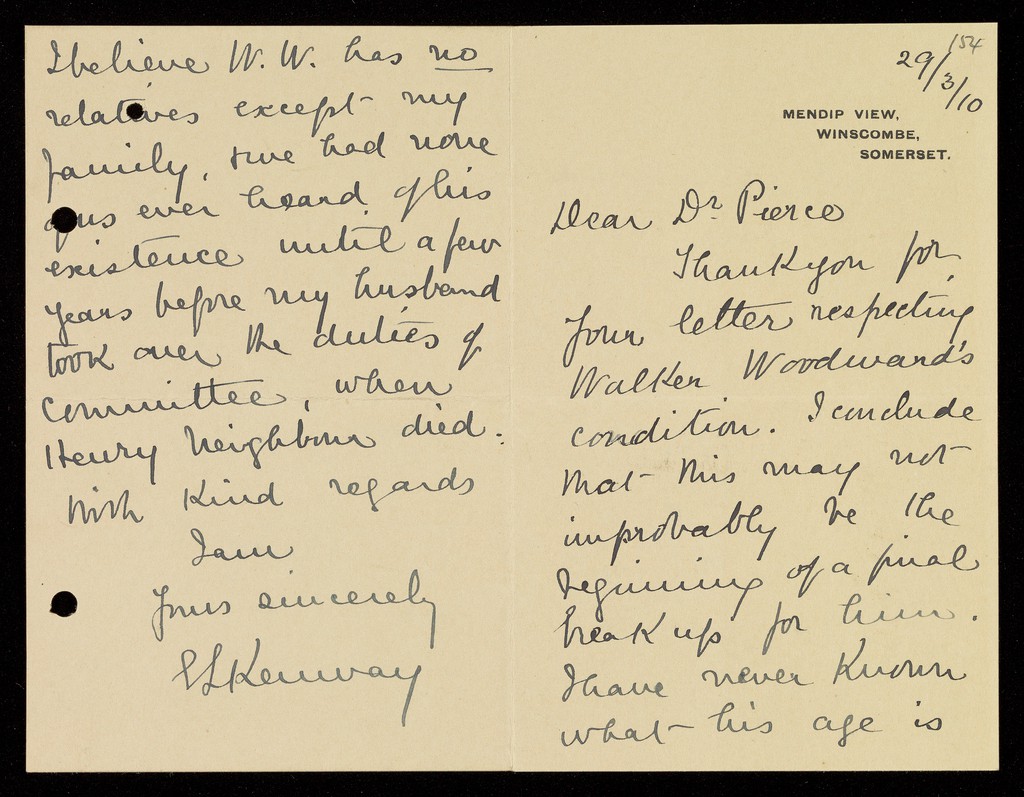 154
29/3/10
MENDIP VIEW,
WINSCOMBE,
SOMERSET.
Dear Dr Pierce
Thank you for
your letter respecting
Walker Woodward's
condition. I conclude
that this may not
improbably be the
beginning of a final
break up for him.
I have never known
what his age is
I believe W. W. has no
relatives except my
family, & we had none
of us ever heard of his
existence until a few
years before my husband
took over the duties of
committee, when
Henry Neighbour died.
With kind regards
I am
Yours sincerely
E L Kenway